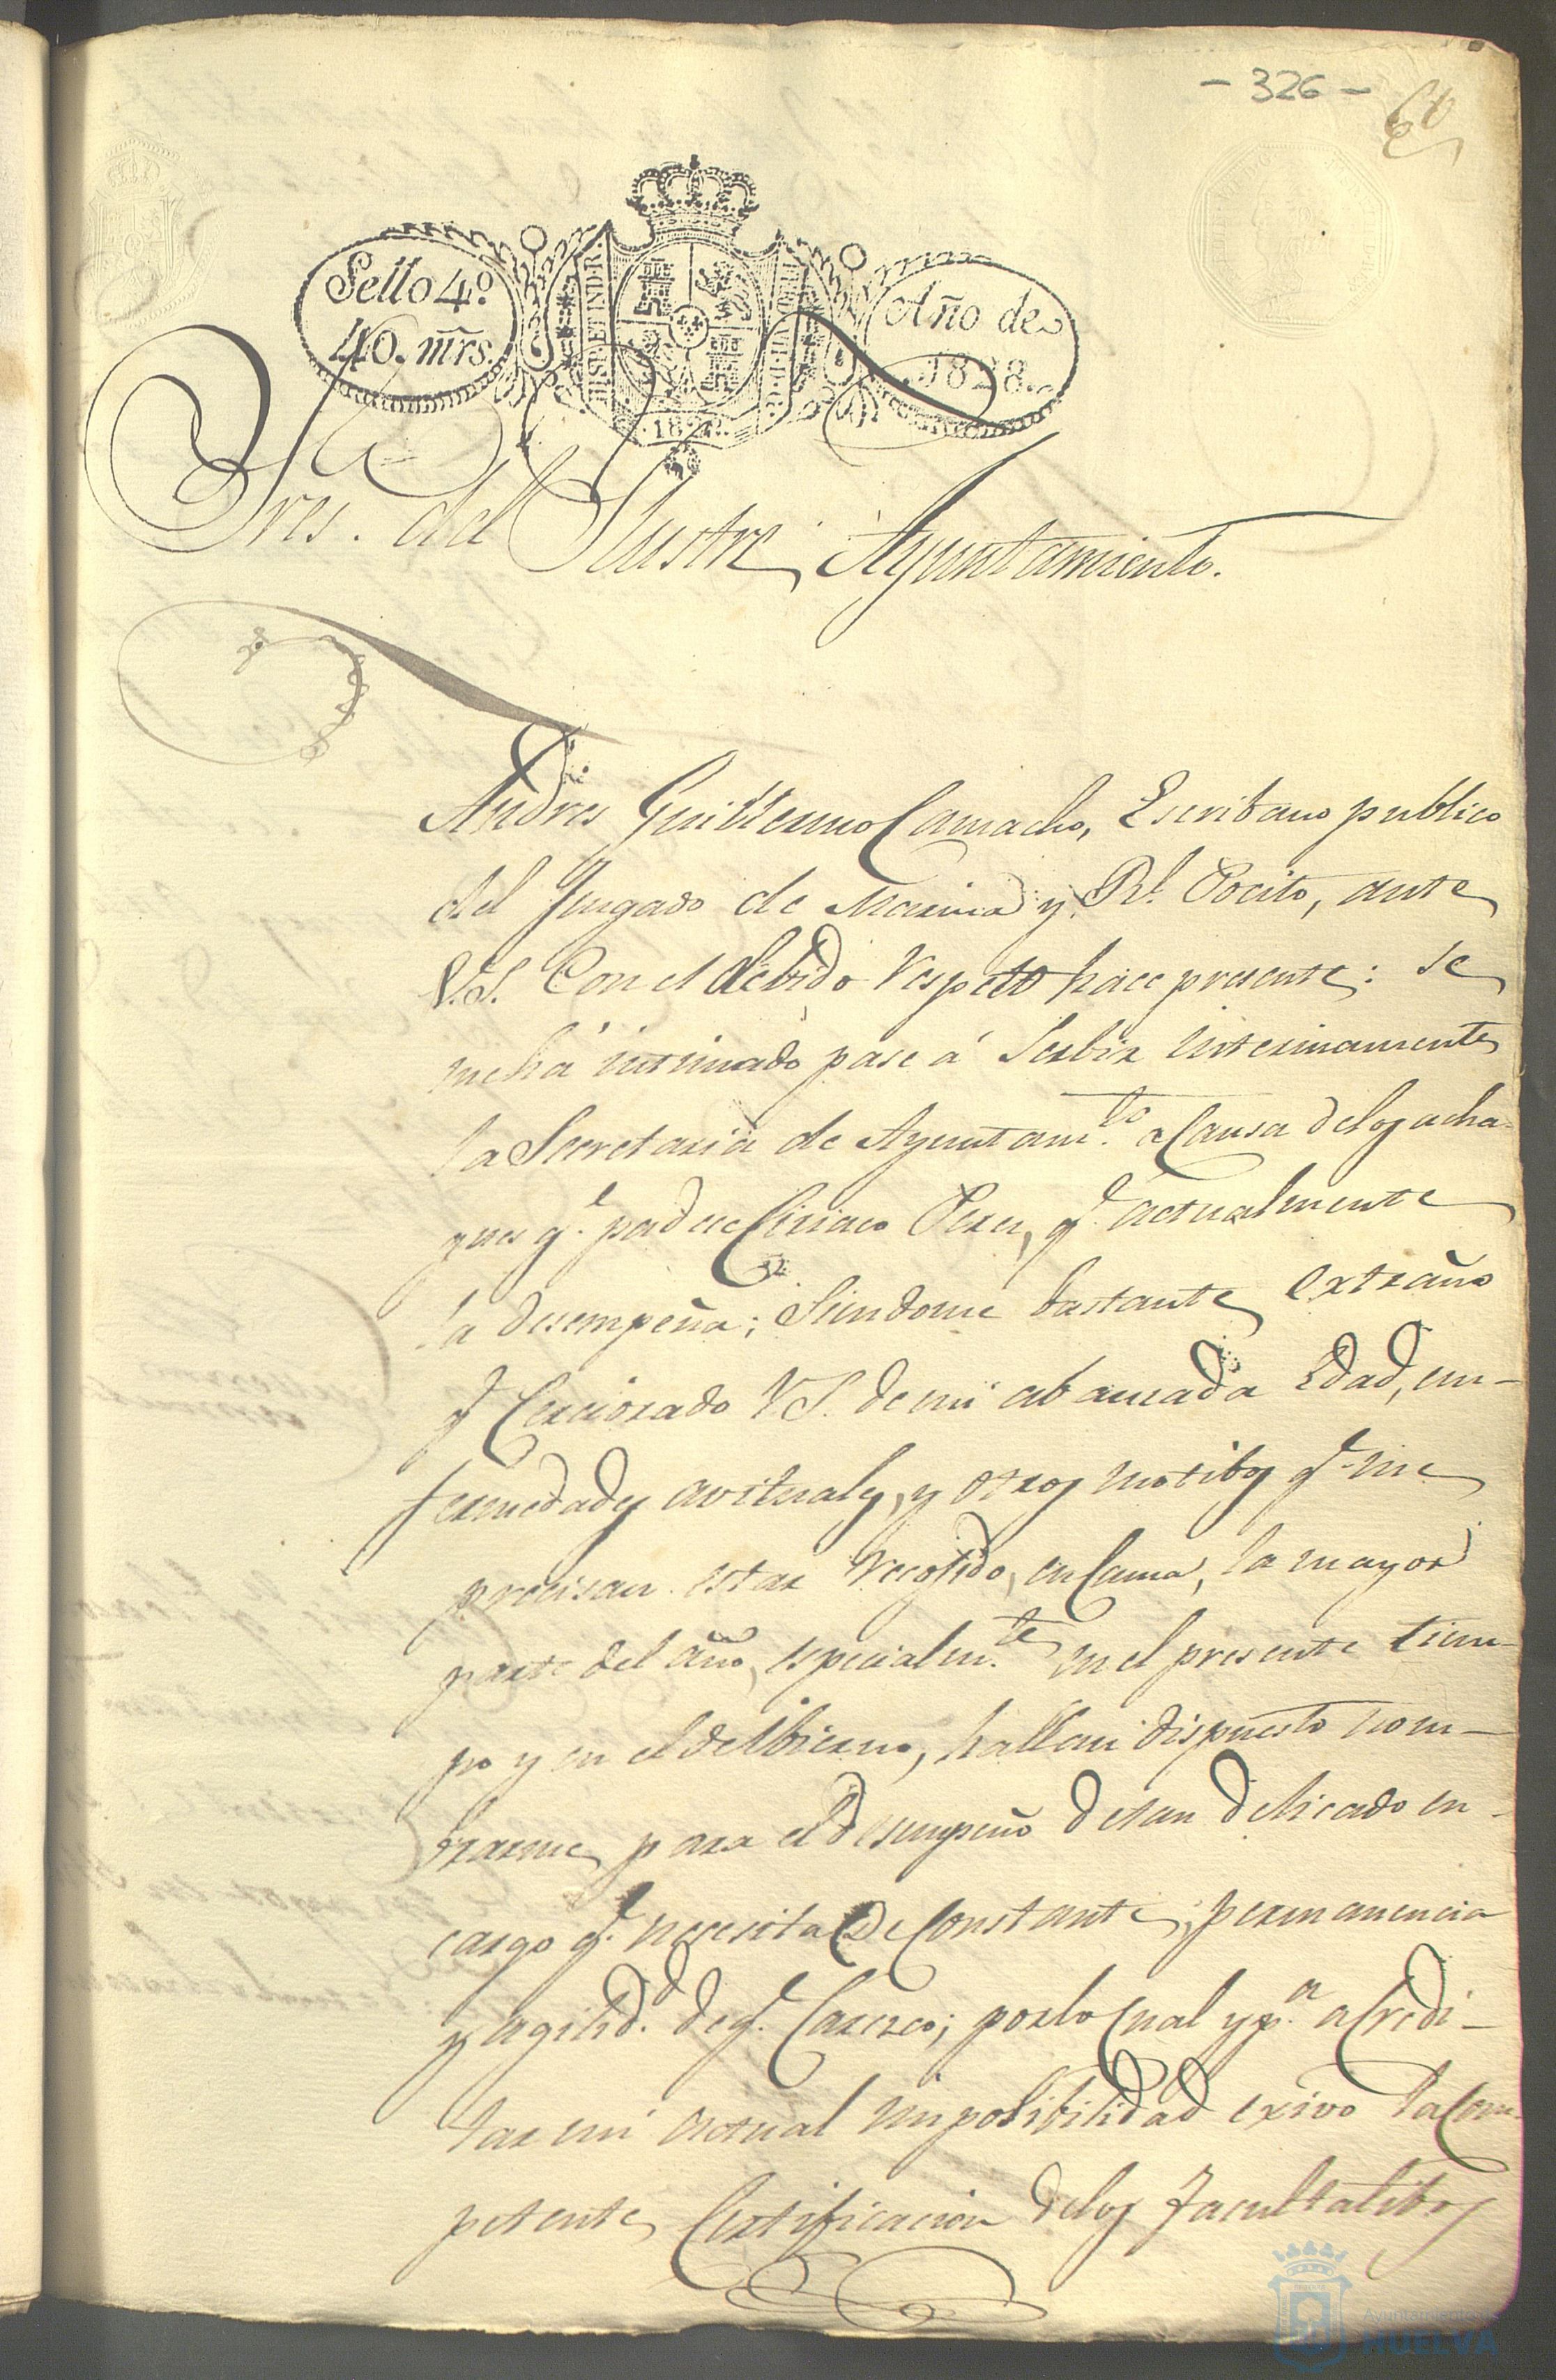 - 326 -
60
Sello 4º.
40. mrs.
HISP. ET IND. R.
Año de
1828.
Sres. del Ilustre Ayuntamiento.
Andres Guillermo Camacho, Escribano publico
del Juzgado de Marina y Rl. Pocito, ante
V.S. Con el debido respeto hace presente: se
me há intimado pase á Serbir interinamente
la Secretaria de Ayuntam.to a Causa delos acha-
ques q.e padece Ciriaco Perez, q.e actualmente
la desempeña; Siendome bastante extraño
q.e Cerciorado V.S. de mi abanzada Edad, en-
fermedades avituales, y otros motibos q.e me
precisan estar recojido, en Cama, la mayor
parte del año, especialm.te en el presente tiem-
po y en el del Ibierno, hallan dispuesto nom-
brarme para el desempeño detan delicado en-
cargo q.e necesita de Constante permanencia
y agilid.d de q.e Carezco; porlo Cual y p.a acredi-
tar mi actual imposibilidad exivo la Com-
petente Certificacion delos Facultatibos
Ayuntamiento de
HUELVA